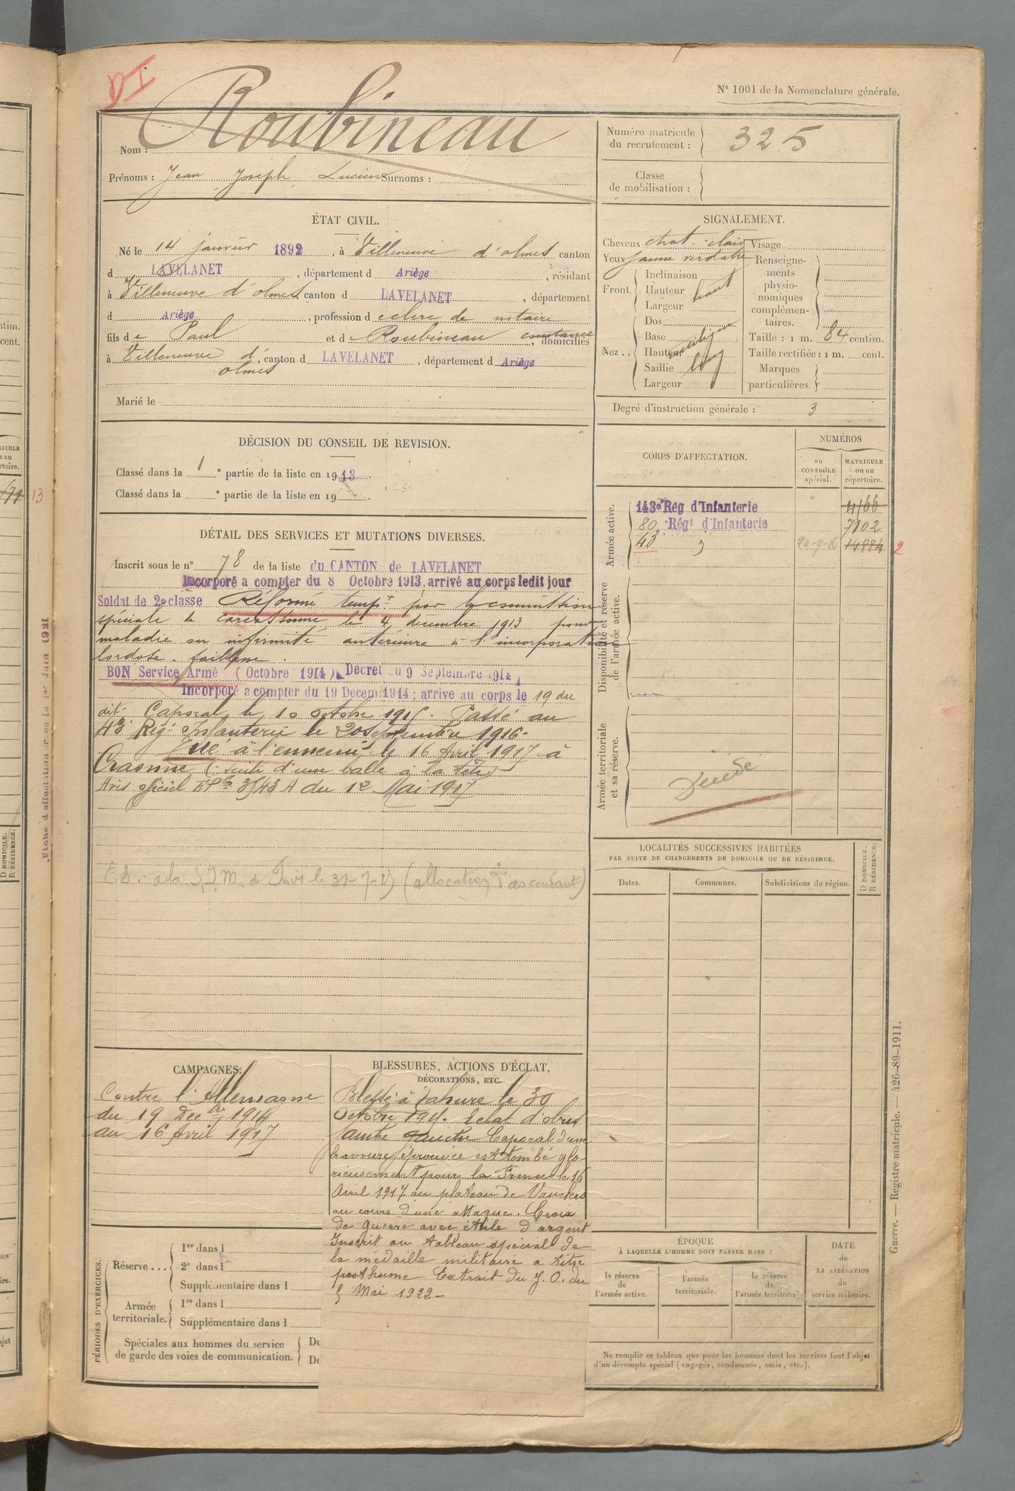 DI
N° 1001 de la Nomenclature générale.
Nom : Roubineau
Prénoms : Jean Joseph Lucien Surnoms :
Numéro matricule du recrutement : 325
Classe de mobilisation :
ÉTAT CIVIL.
Né le 14 janvier 1892, à Villeneuve d'olmes canton
d LAVELANET, département d Ariège, résidant
à Villeneuve d'olmes, canton d LAVELANET, département
d Ariège, profession d clerc de notaire
fils de Paul et d Roubineau domiciliés
à Villeneuve d'olmes, canton d LAVELANET, département d Ariège
Marié le
SIGNALEMENT.
Cheveux chat. clair Visage
Yeux jaune verdâtre Renseignements physionomiques complémentaires.
Front. Inclinaison
Hauteur haut
Largeur
Nez.. Dos
Base
Hauteur
Saillie
Largeur
Taille : 1 m. 84 centim.
Taille rectifiée : 1 m. cent.
Marques particulières.
Degré d'instruction générale : 3
DÉCISION DU CONSEIL DE REVISION.
Classé dans la 1 e partie de la liste en 1913
Classé dans la e partie de la liste en 19
CORPS D'AFFECTATION.
NUMÉROS
DU CONTRÔLE spécial.
MATRICULE ou au répertoire.
Armée active.
143e Rég d'Infanterie
80. Régt d'Infanterie 7802
43 14884 2
Disponibilité et réserve de l'armée active.
Armée territoriale et sa réserve.
DÉTAIL DES SERVICES ET MUTATIONS DIVERSES.
Inscrit sous le n° 78 de la liste du CANTON de LAVELANET
Incorporé a compter du 8 Octobre 1913, arrivé au corps ledit jour
Soldat de 2e classe Réformé tempt par la commission
spéciale de carcassonne le 4 décembre 1913 pour
maladie ou infirmité antérieure à l'incorporation
lordose. faiblesse.
BON Service Armé (Octobre 1914) Décret du 9 Septembre 1914,
Incorporé a compter du 19 Decem 1914; arrive au corps le 19 du
dit. Caporal le 10 octobre 1915. Passé au
43 Regt Infanterie le 20 septembre 1916.
Tué à l'ennemi le 16 Avril 1917 à
Craonne (suite d'une balle à la tête)
Avis officiel 3543 A du 12 Mai 1917
LOCALITÉS SUCCESSIVES HABITÉES
PAR SUITE DE CHANGEMENTS DE DOMICILE OU DE RÉSIDENCE.
D DOMICILE. R RÉSIDENCE.
Dates.
Communes.
Subdivisions de région.
(allocation d'ascendant)
CAMPAGNES.
Contre l'Allemagne
du 19 Decbre 1914
au 16 Avril 1917
BLESSURES, ACTIONS D'ÉCLAT,
DÉCORATIONS, ETC.
Blessé à Tahure le 30
Octobre 1915. Eclat d'obus
jambe gauche Caporal d'une
bravoure éprouvée est tombé glo-
rieusement pour la France le 16
Avril 1917 au plateau de Vauclerc
au cours d'une attaque. Croix
de guerre avec étoile d'argent
Inscrit au tableau spécial de
la médaille militaire a titre
posthume Extrait du J.O. du
5 Mai 1922
PÉRIODES D'EXERCICES.
Réserve...
1re dans l
2e dans l
Supplémentaire dans l
Armée territoriale.
1re dans l
Supplémentaire dans l
Spéciales aux hommes du service de garde des voies de communication.
Du
Du
ÉPOQUE
À LAQUELLE L'HOMME DOIT PASSER DANS :
la réserve de l'armée active.
l'armée territoriale.
la réserve de l'armée territoriale
DATE de LA LIBÉRATION du service militaire.
Ne remplir ce tableau que pour les hommes dont les services font l'objet
d'un décompte spécial (engagés, condamnés, omis, etc.).
Guerre. — Registre matricule. — 426-89-1911.